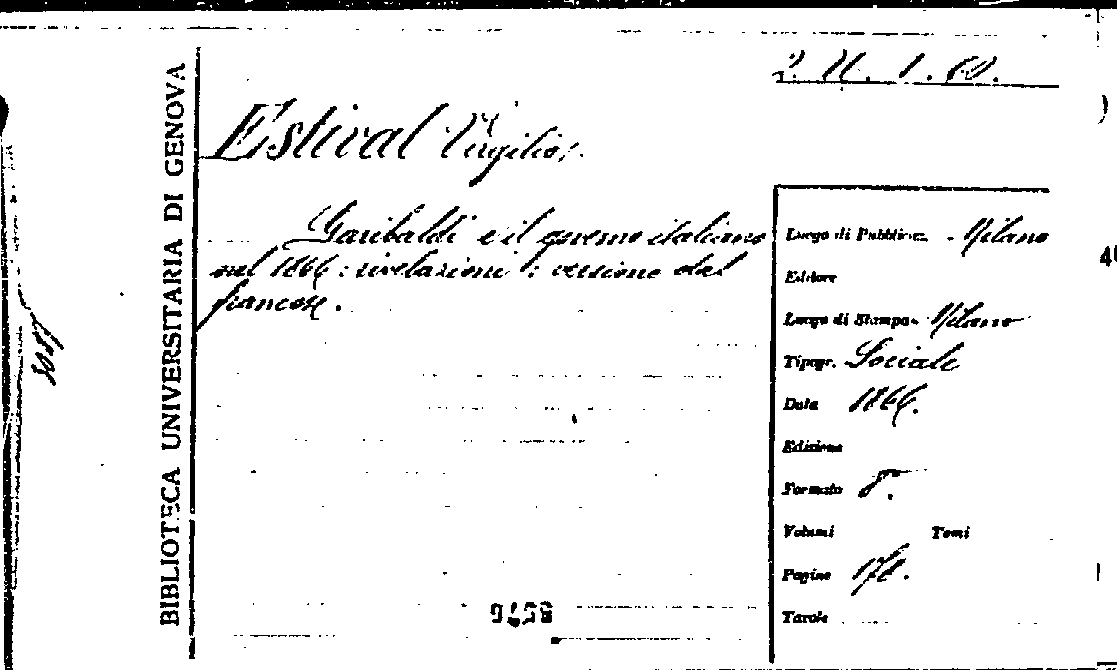 BIBLIOTECA UNIVERSITARIA DI GENOVA
Estival Virgilio.
Garibaldi e il governo italiano
nel 1866: rivelazioni: versione dal
francese.
Luogo di Pubblicaz. Milano
Editore
Luogo di Stampa Milano
Tipogr. Sociale
Data 1866.
Edizione
Formato 8°.
Volumi Tomi
Pagine
Tavole